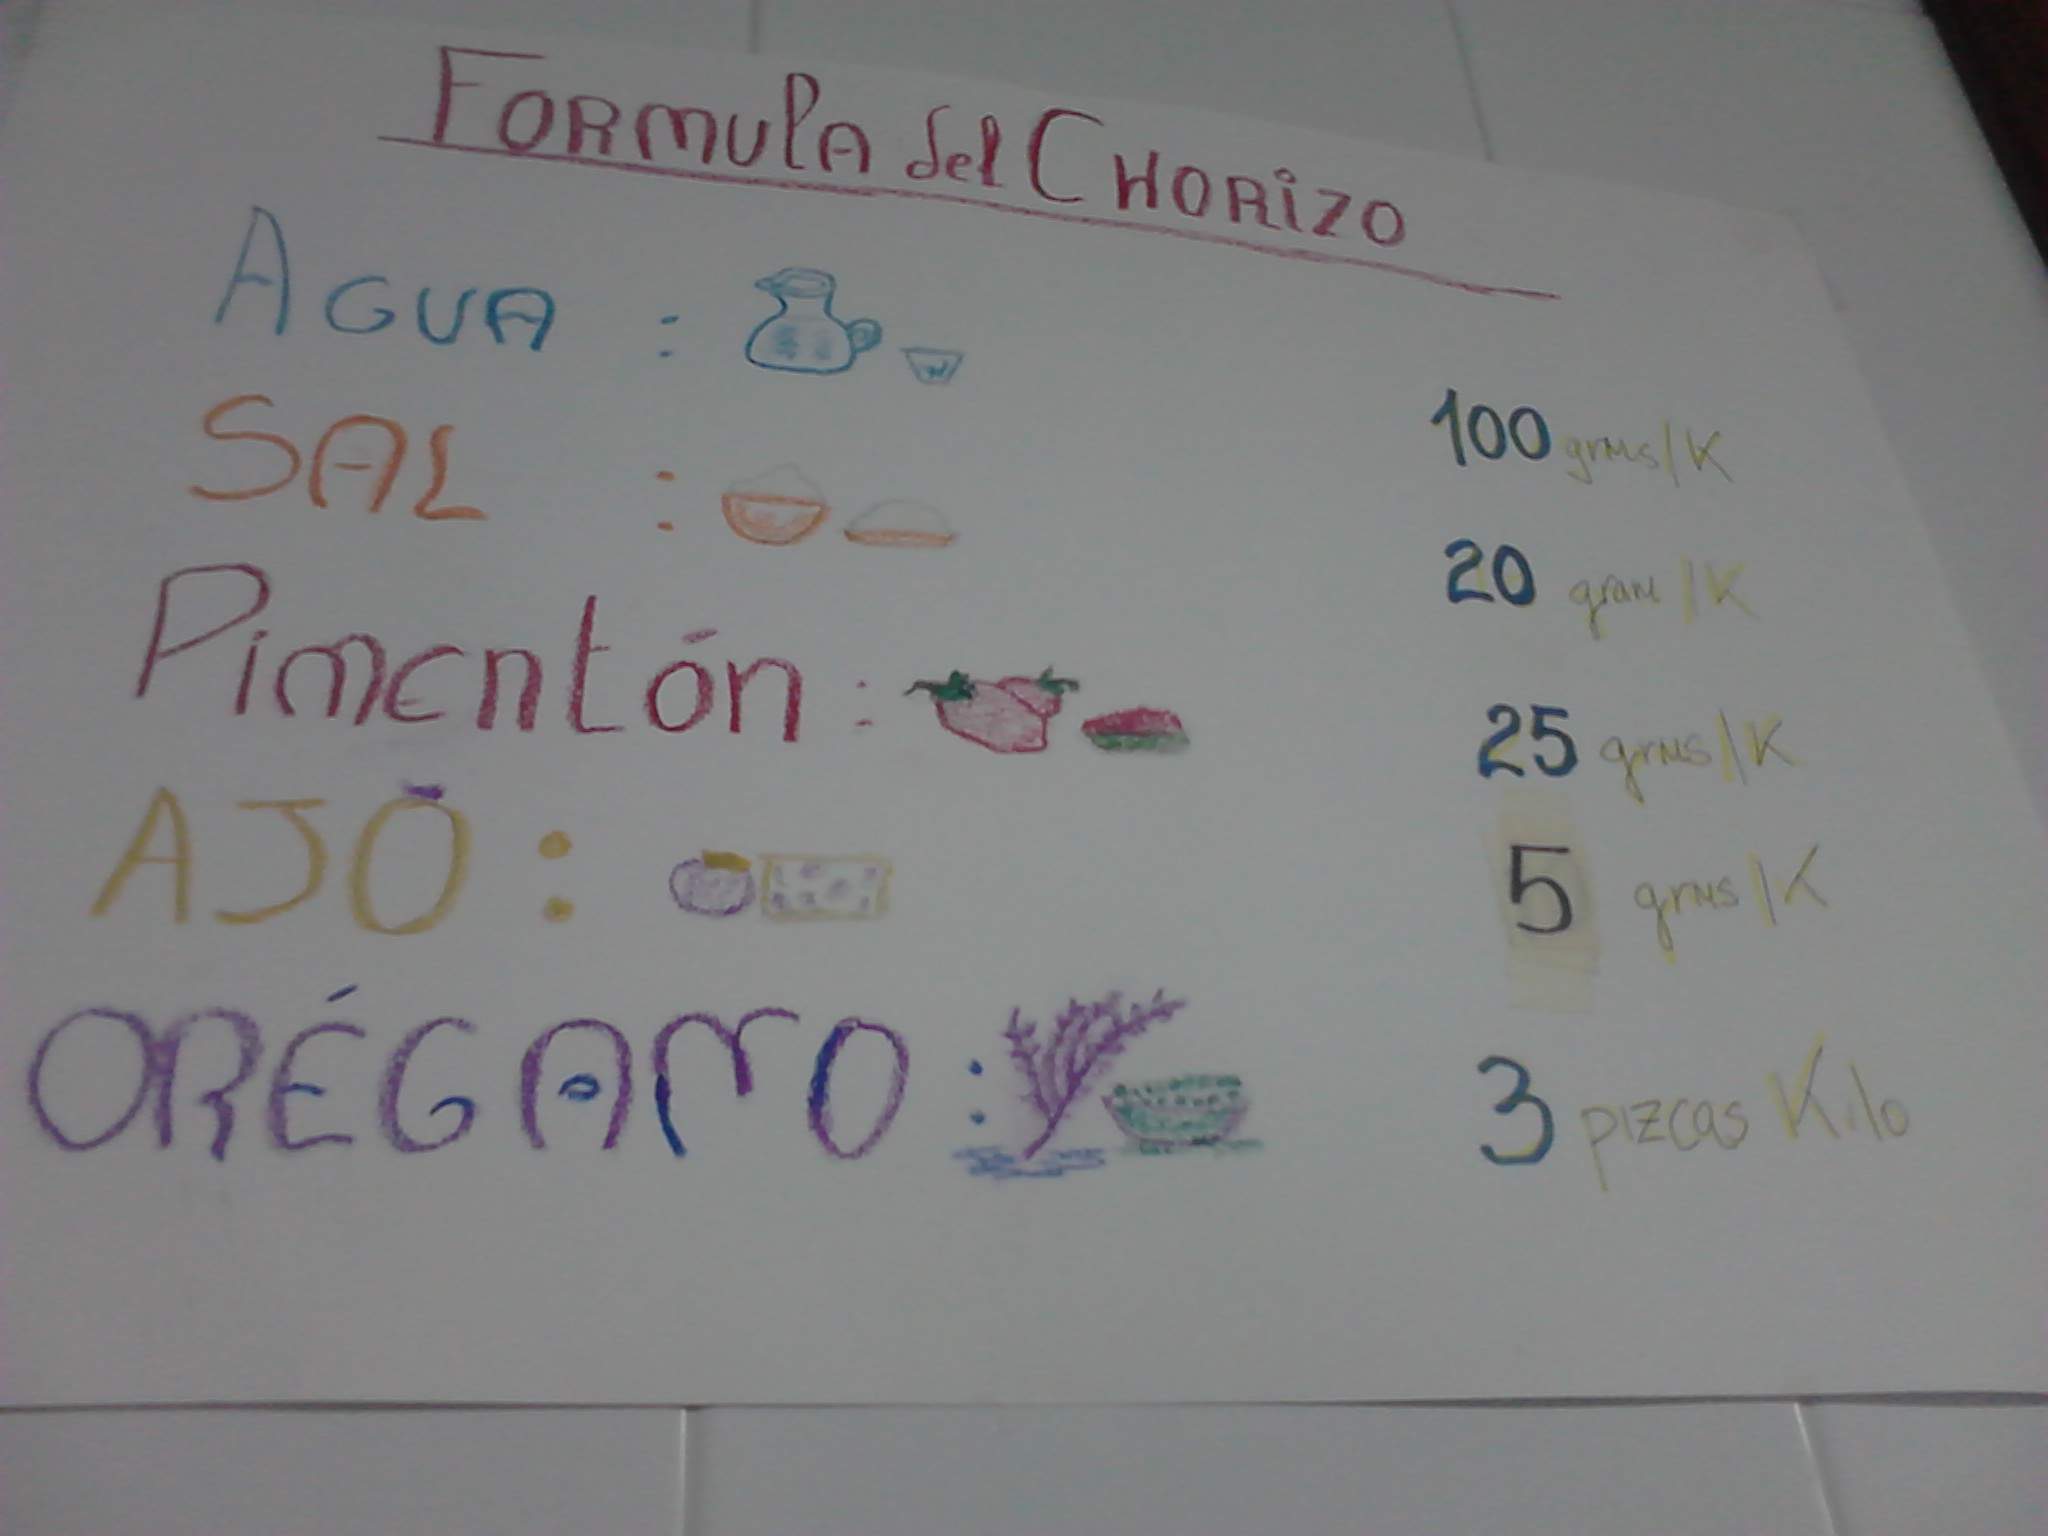 FORMULA del CHORIZO
AGUA : 100 grms/K
SAL : 20 gram/K
Pimentón : 25 grms/K
AJO : 5 grms/K
ORÉGANO : 3 pizcas Kilo